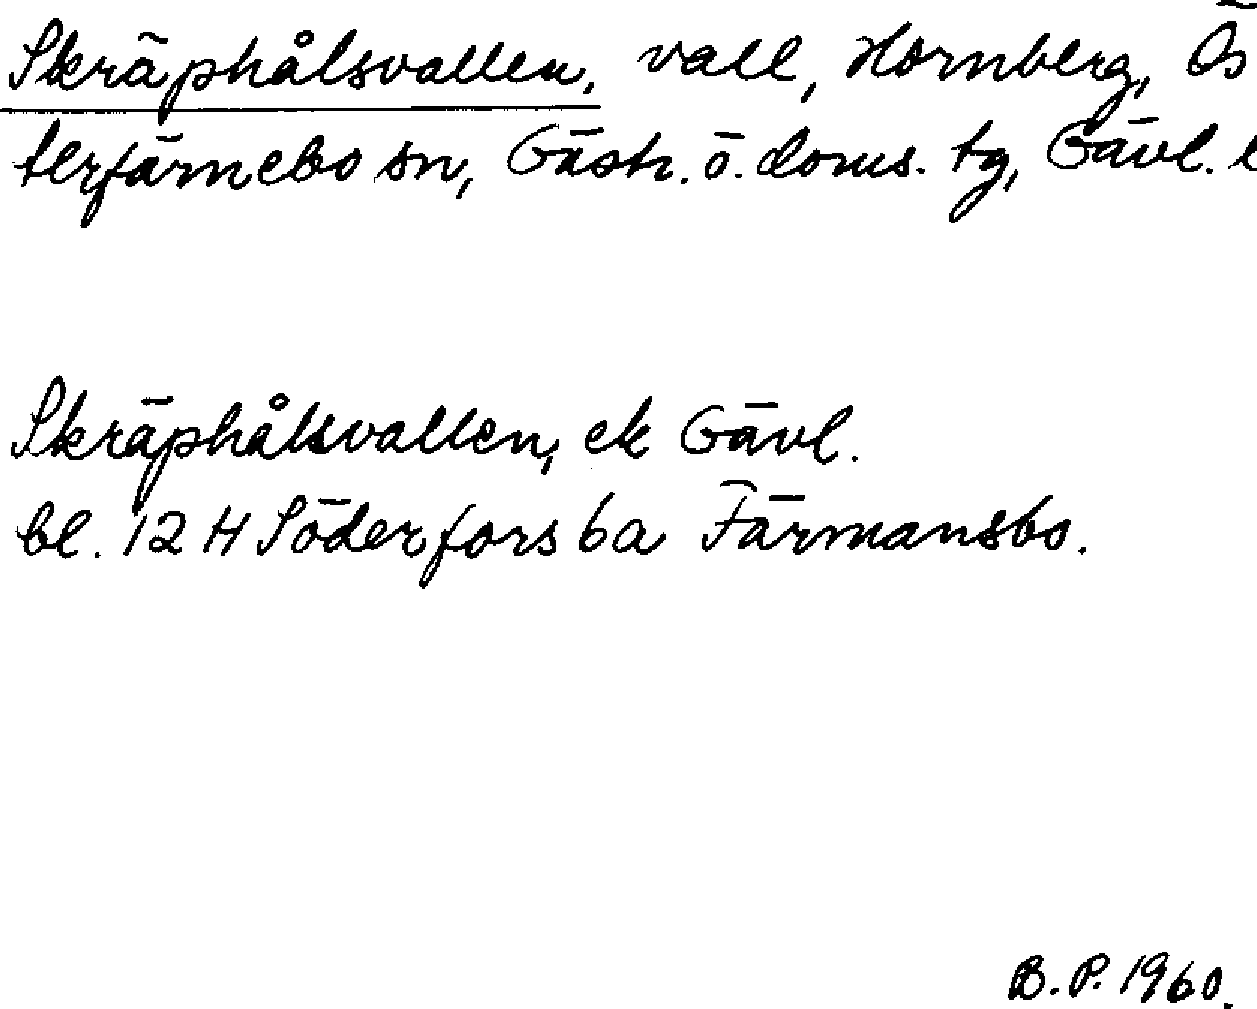 Skräphålsvallen, vall, Hornberg, Ös
terfärnebo sn, Gästr. ö. doms. tg, Gävl. l
Skräphålsvallen, ek Gävl.
bl. 12 H Söderfors 6a Färmansbo.
B. P. 1960.